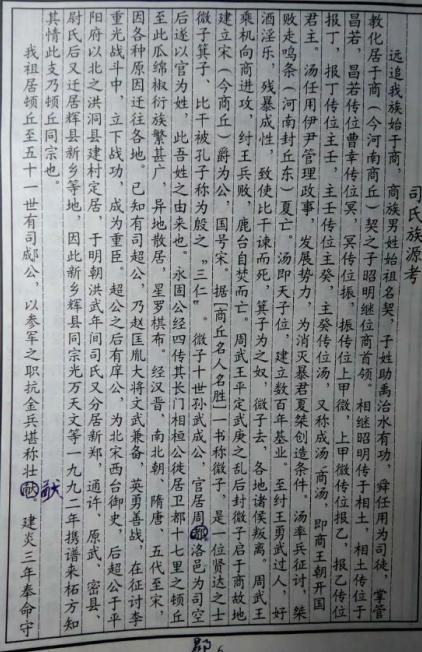 司氏族源考
远追我族始于商，商族男姓始祖名契，子姓助禹治水有功，舜任用为司徒，掌管
教化居于商（今河南商丘）契之子昭明继位商首领。相继昭明传于相土，相土传位于
昌若，昌若传位曹幸传位冥，冥传位振，振传位上甲微，上甲微传位报乙，报乙传位
报丁，报丁传位主壬，主壬传位主癸，主癸传位汤，又称成汤，商汤，即商王朝开国
君主。汤任用伊尹管理政事，发展势力，为消灭暴君夏桀创造条件。汤率兵征讨，桀
败走鸣条（河南封丘东）夏亡。汤即天子位，建立数百年基业。至纣王勇武过人，好
酒淫乐，残暴成性，致使比干谏而死，箕子为之奴，微子去，各地诸侯叛离。周武王
乘机向商进攻，纣王兵败，鹿台自焚而亡。周武王平定武庚之乱后封微子启于商故地
建立宋（今商丘）爵为公，国号宋。据[商丘名人名胜]一书称微子，是一位贤达之士
微子箕子，比干被孔子称为殷之“三仁”。微子十世孙武成公，官居周 洛邑为司空
后遂以官为姓，此吾姓之由来也。永固公经四传其长门相桓公徙居卫都十七里之顿丘
至此瓜绵椒衍族繁甚广，异地散居，星罗棋布。经汉晋，南北朝、隋唐、五代至宋，
因各种原因迁往各地。已知有司超公，乃赵匡胤大将文武兼备，英勇善战，在征讨李
重光战斗中，立下战功，成为重臣。超公之后有庠公，为北宋西台御史，后超公于平
阳府以北之洪洞县建村定居，于明朝洪武年间司氏又分居新郑，通许，原武，密县、
尉氏后又迁居辉县新乡等地，因此新乡辉县同宗光万天文等一九九二年携谱来柘方知
其情此支乃顿丘同宗也。
我祖居顿丘至五十一世有司郕公，以参军之职抗金兵堪称壮 献 建炎三年奉命守
都
6